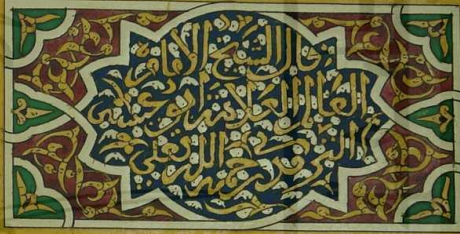 قال الشيخ الامام
العالم العلامة ابو عيسى
الترمذي رحمه الله تعالى